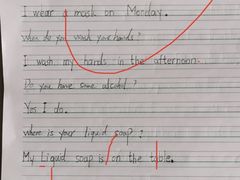 I wear a mask on Monday.
When do you wash your hands?
I wash my hands in the afternoon.
Do you have some alcohol?
Yes I do.
where is your liquid soap?
My Liquid soap is on the table.